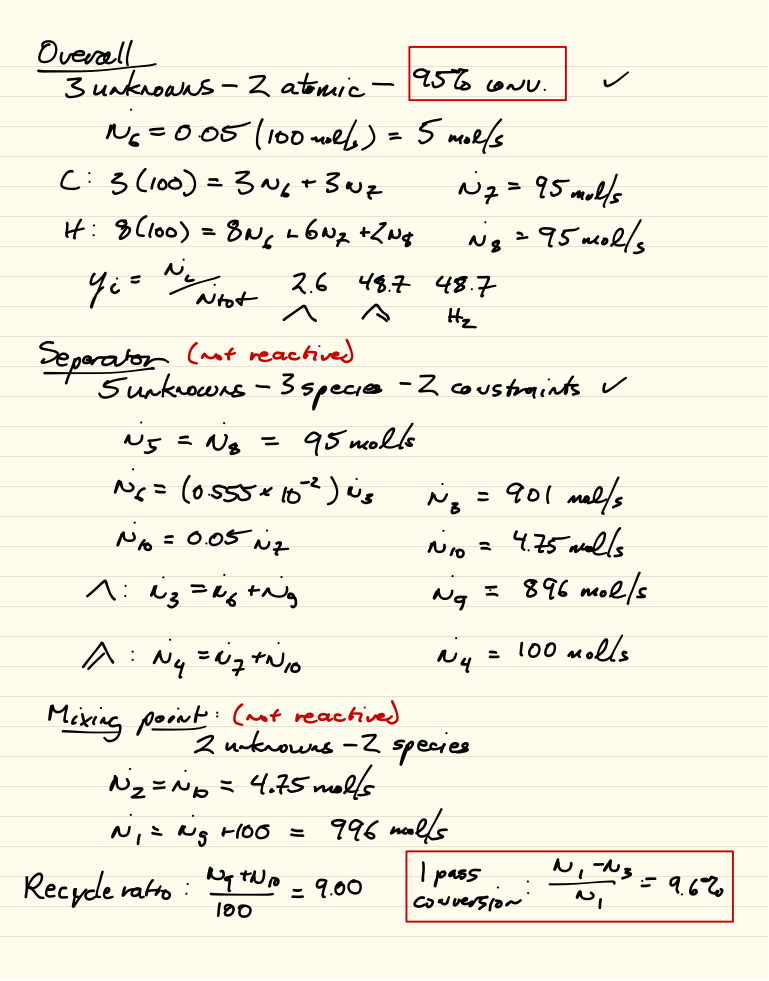 Overall
3 unknowns - 2 atomic - 95% conv. ✓
Ṅ₆ = 0.05 (100 mol/s) = 5 mol/s
C: 3(100) = 3N₆ + 3N₇ Ṅ₇ = 95 mol/s
H: 8(100) = 8N₆ + 6N₇ + 2N₈ Ṅ₈ = 95 mol/s
yᵢ = Ṅᵢ/Ṅtot 2.6 48.7 48.7
H₂
Separator (not reactive)
5 unknowns - 3 species - 2 constraints ✓
Ṅ₅ = Ṅ₈ = 95 mol/s
Ṅ₆ = (0.555 × 10⁻²) Ṅ₃ Ṅ₃ = 901 mol/s
Ṅ₁₀ = 0.05 Ṅ₇ Ṅ₁₀ = 4.75 mol/s
: Ṅ₃ = Ṅ₆ + Ṅ₉ Ṅ₉ = 896 mol/s
: Ṅ₄ = Ṅ₇ + Ṅ₁₀ Ṅ₄ = 100 mol/s
Mixing point: (not reactive)
2 unknowns - 2 species
Ṅ₂ = Ṅ₁₀ = 4.75 mol/s
Ṅ₁ = Ṅ₉ + 100 = 996 mol/s
Recycle ratio: (Ṅ₉ + Ṅ₁₀)/100 = 9.00
1 pass conversion: (Ṅ₁ - Ṅ₃)/Ṅ₁ = 9.6%